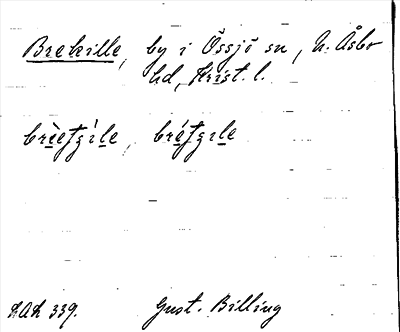 Brekille, by i Össjö sn, N. Åsbo
hd, Krist. l.
brìetgìle, brétgile
LAL 339. Gust. Billing